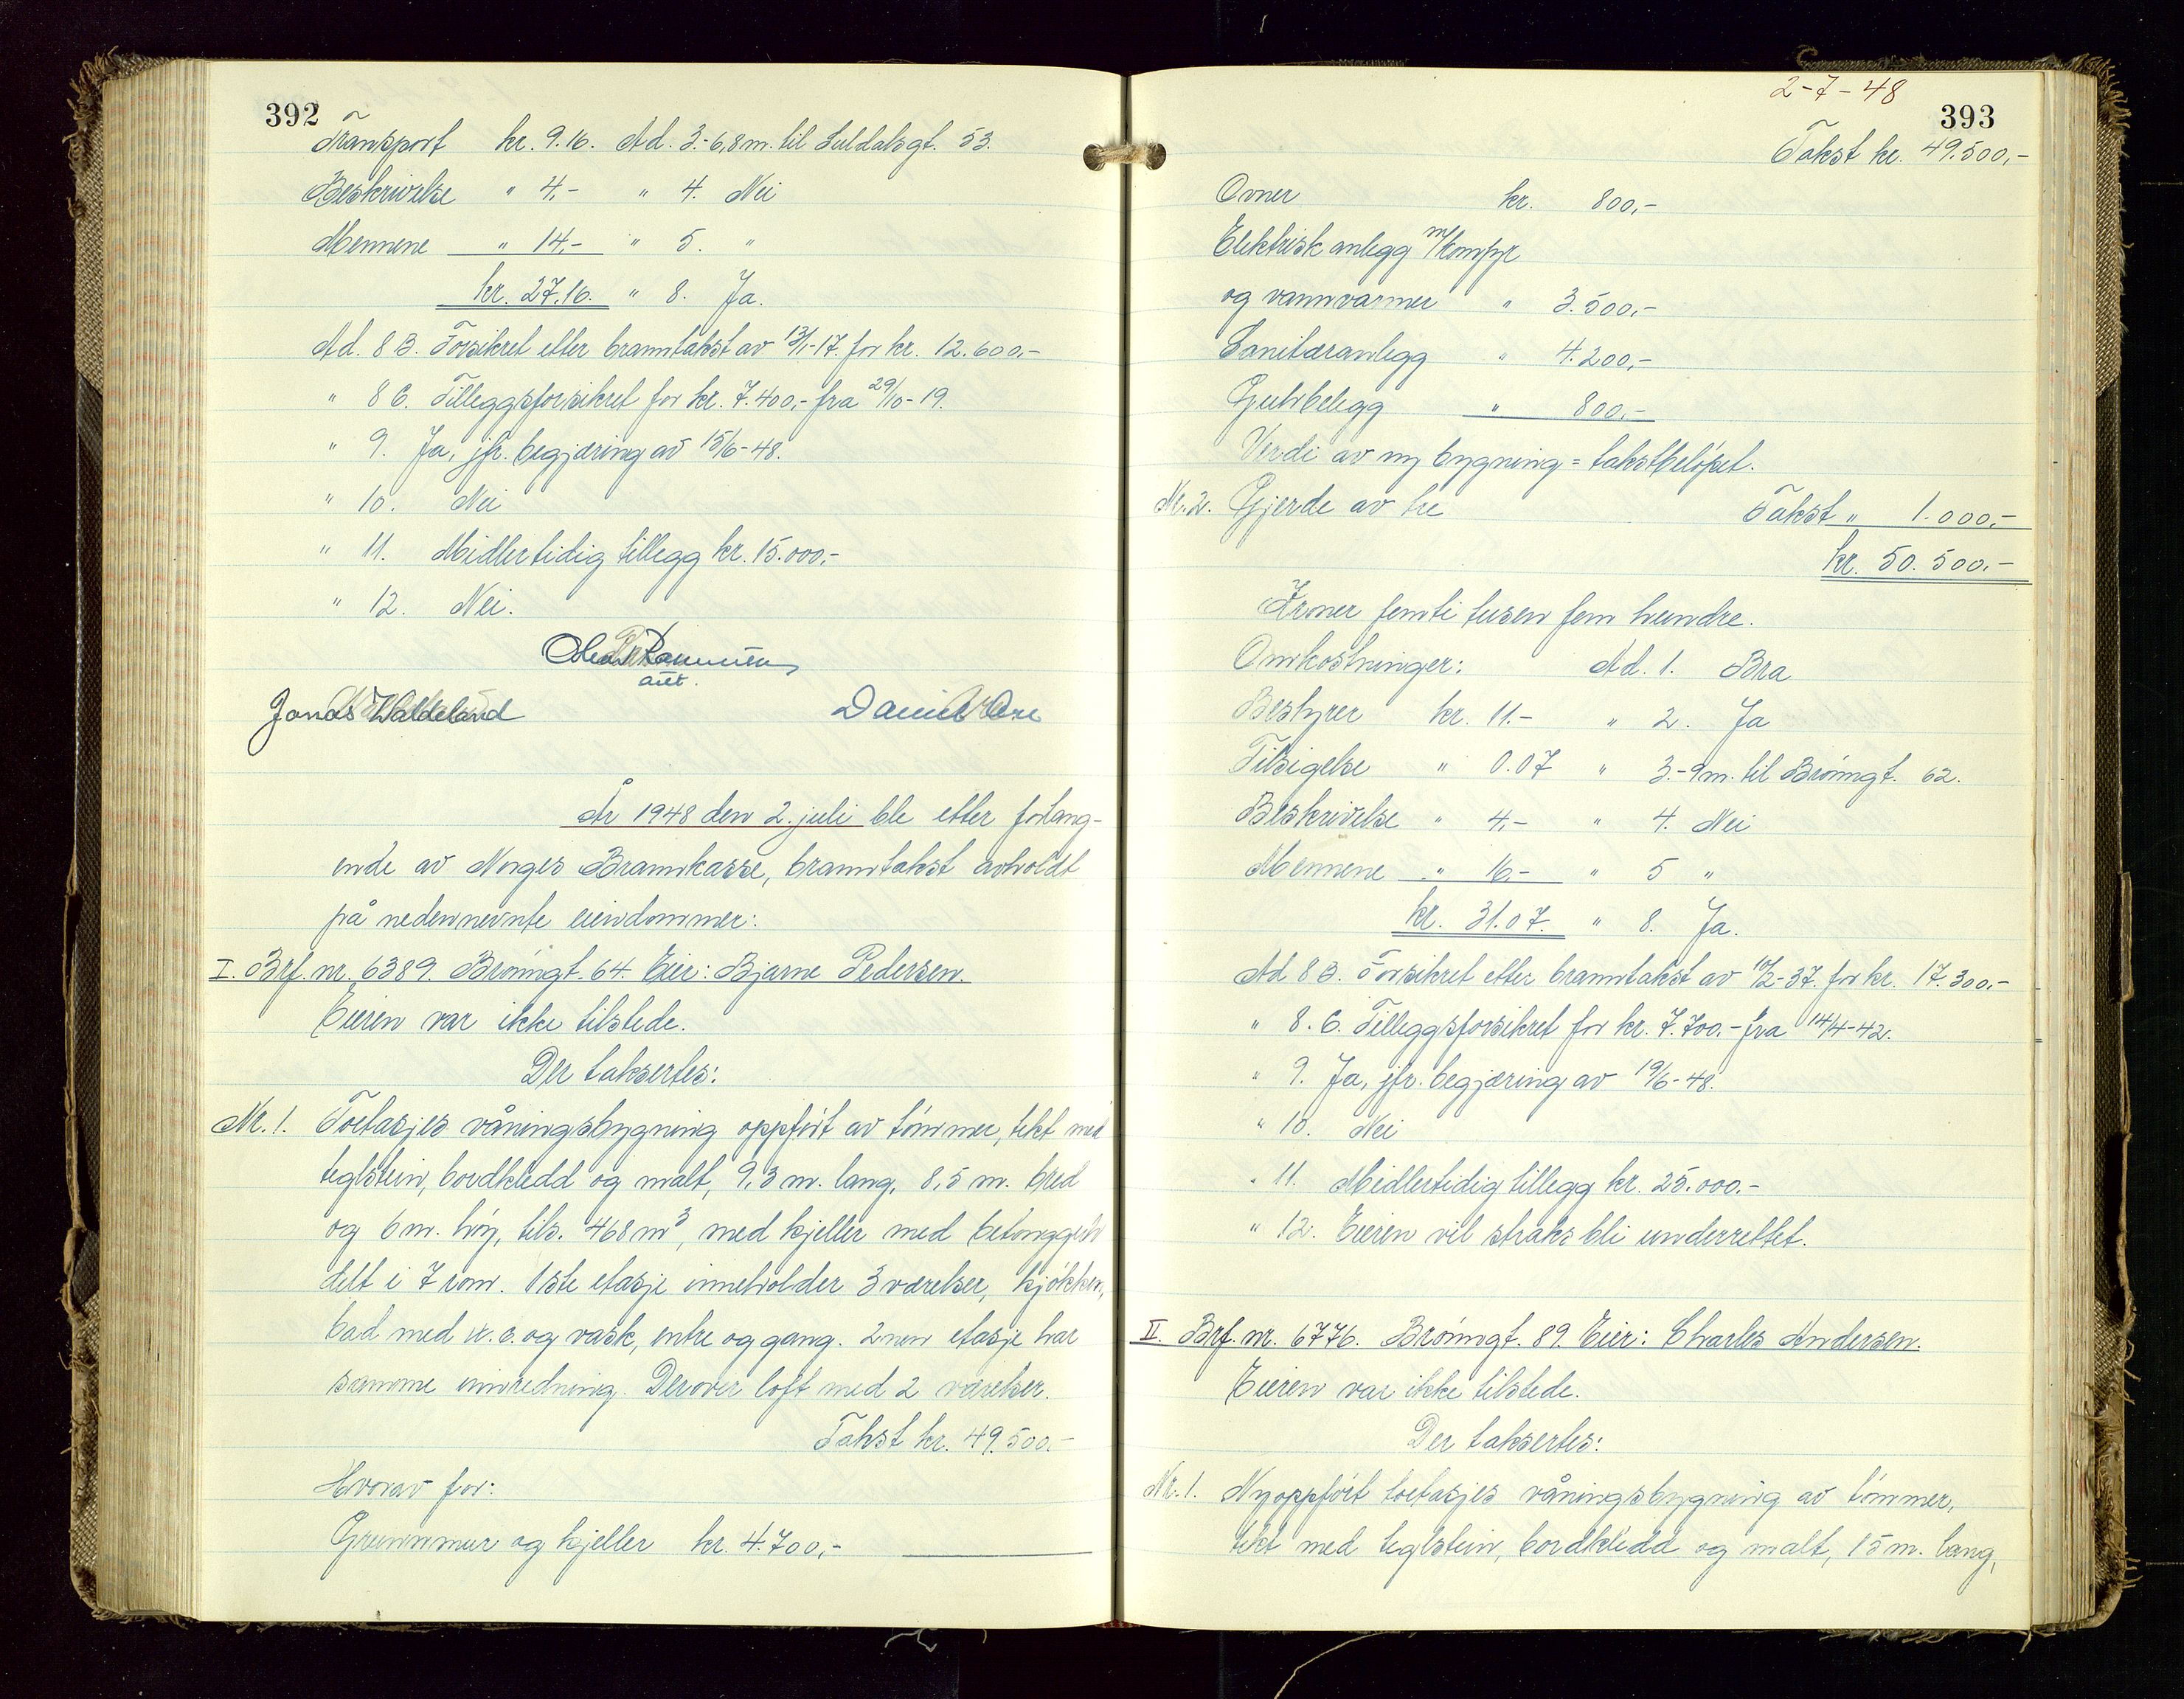 392
Transport kr. 9.16. Ad. 3.-6,8 m. til Suldalsgt. 53.
Beskrivelse " 4,- " 4. Nei
Mennene " 14,- " 5. "
kr. 27.16. " 8. Ja.
Ad. 8 B. Forsikret etter branntakst av 13/1-17. for kr. 12.600,-
" 8 C. Tilleggsforsikret for kr. 7.400,- fra 29/10-19.
" 9. Ja, jfr. begjæring av 15/6-48.
" 10. Nei
" 11. Midlertidig tillegg kr. 15.000,-
" 12. Nei.
Rasmussen
aut.
Jonas Waldeland Daniel
År 1948 den 2. juli ble etter forlang-
ende av Norges Brannkasse, branntakst avholdt
på nedennevnte eiendommer:
I. Brf. nr. 6389. Brönngt. 64. Eier: Bjarne Pedersen.
Eieren var ikke tilstede.
Der taksertes:
Nr. 1. Toetasjes våningsbygning oppfört av tömmer, tekt med
teglstein, bordkledd og malt, 9,3 m. lang, 8,5 m. bred
og 6 m. höy, tils. 468 m³, med kjeller med betonggulv
delt i 7 rom. 1ste etasje inneholder 3 værelser, kjökken,
bad med w.c. og vask, entre og gang. 2nen etasje har
samme innredning. Derover loft med 2 værelser.
Takst kr. 49.500.-
Hvorav for:
Grunnmur og kjeller kr. 4.700,-
2-7-48
393
Takst kr. 49.500,-
Ovner kr. 800,-
Elektrisk anlegg m/komfyr
og vannvarmer " 3.500,-
Sanitæranlegg " 4.200,-
Gulvbelegg " 800,-
Verdi av ny bygning = takstbelöpet.
Nr. 2. Gjerde av tre Takst " 1.000,-
kr. 50.500,-
Kroner femti tusen fem hundre.
Omkostninger: Ad. 1. Bra
Bestyrer kr. 11.- " 2. Ja
Tilsigelse " 0.07 " 3.-9 m. til Brönngt. 62.
Beskrivelse " 4,- " 4. Nei
Mennene " 16,- " 5 "
kr. 31.07. " 8. Ja.
Ad 8 B. Forsikret etter branntakst av 10/2-37. for kr. 17.300,-
" 8. C. Tilleggsforsikret for kr. 7.700.- fra 14/4-42.
" 9. Ja, jfr. begjæring av 19/6-48.
" 10. Nei
" 11. Midlertidig tillegg kr. 25.000.-
" 12. Eieren vil straks bli underrettet.
II. Brf. nr. 6776. Brönngt. 89. Eier: Charles Andersen.
Eieren var ikke tilstede.
Der taksertes:
Nr. 1. Nyoppfört toetasjes våningsbygning av tömmer,
tekt med teglstein, bordkledd og malt, 15 m. lang,